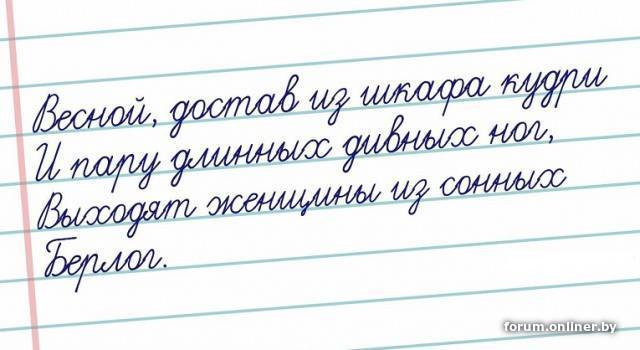 Весной, достав из шкафа кудри
И пару длинных дивных ног,
Выходят женщины из сонных
Берлог.
forum.onliner.by